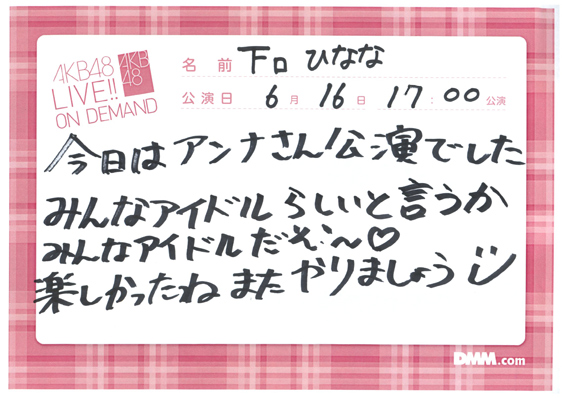 AKB48
LIVE!!
ON DEMAND
AKB
48
名 前 下口 ひなな
公演日 6月 16日 17:00 公演
今日はアンナさん公演でした
みんなアイドルらしいと言うか
みんなアイドルだぞ~♡
楽しかったね またやりましょう
DMM.com